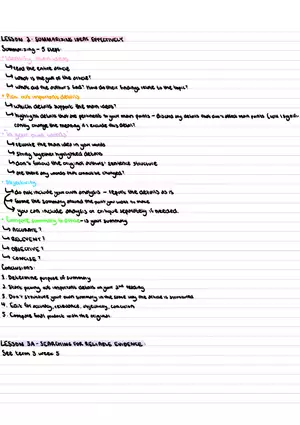 LESSON 2: SUMMARIZING IDEAS EFFECTIVELY
Summarizing - 5 steps
↳ read the entire article
↳ what is the gist of the article?
↳ what did the authors find? How do their findings relate to the topic?
• Pick out important details
↳ which details support the main ideas?
↳ highlight details that are pertinent to your main points - discard any details that don't affect main points
change the meaning if I exclude this detail?
• In your own words
↳ rewrite the main idea in your words
↳ string together highlighted details
↳ don't follow the original authors' sentence structure
↳ are there any words that cannot be changed?
• Objectivity
↳ do not include your own analysis - report the details as is
↳ frame the summary around the point you want to make
↳ you can include analysis or critique separately if needed.
• Compare summary to article - is your summary
↳ ACCURATE?
↳ RELEVENT?
↳ OBJECTIVE?
↳ CONCISE?
Conclusions:
1. Determine purpose of summary
2. Start picking out important details on your 2nd reading
3. Don't structure your own summary in the same way the article is structured
4. Edit for accuracy, relevance, objectivity, concision
5. Compare final product with the original
LESSON 3A - SEARCHING FOR RELIABLE EVIDENCE:
See term 3 week 5